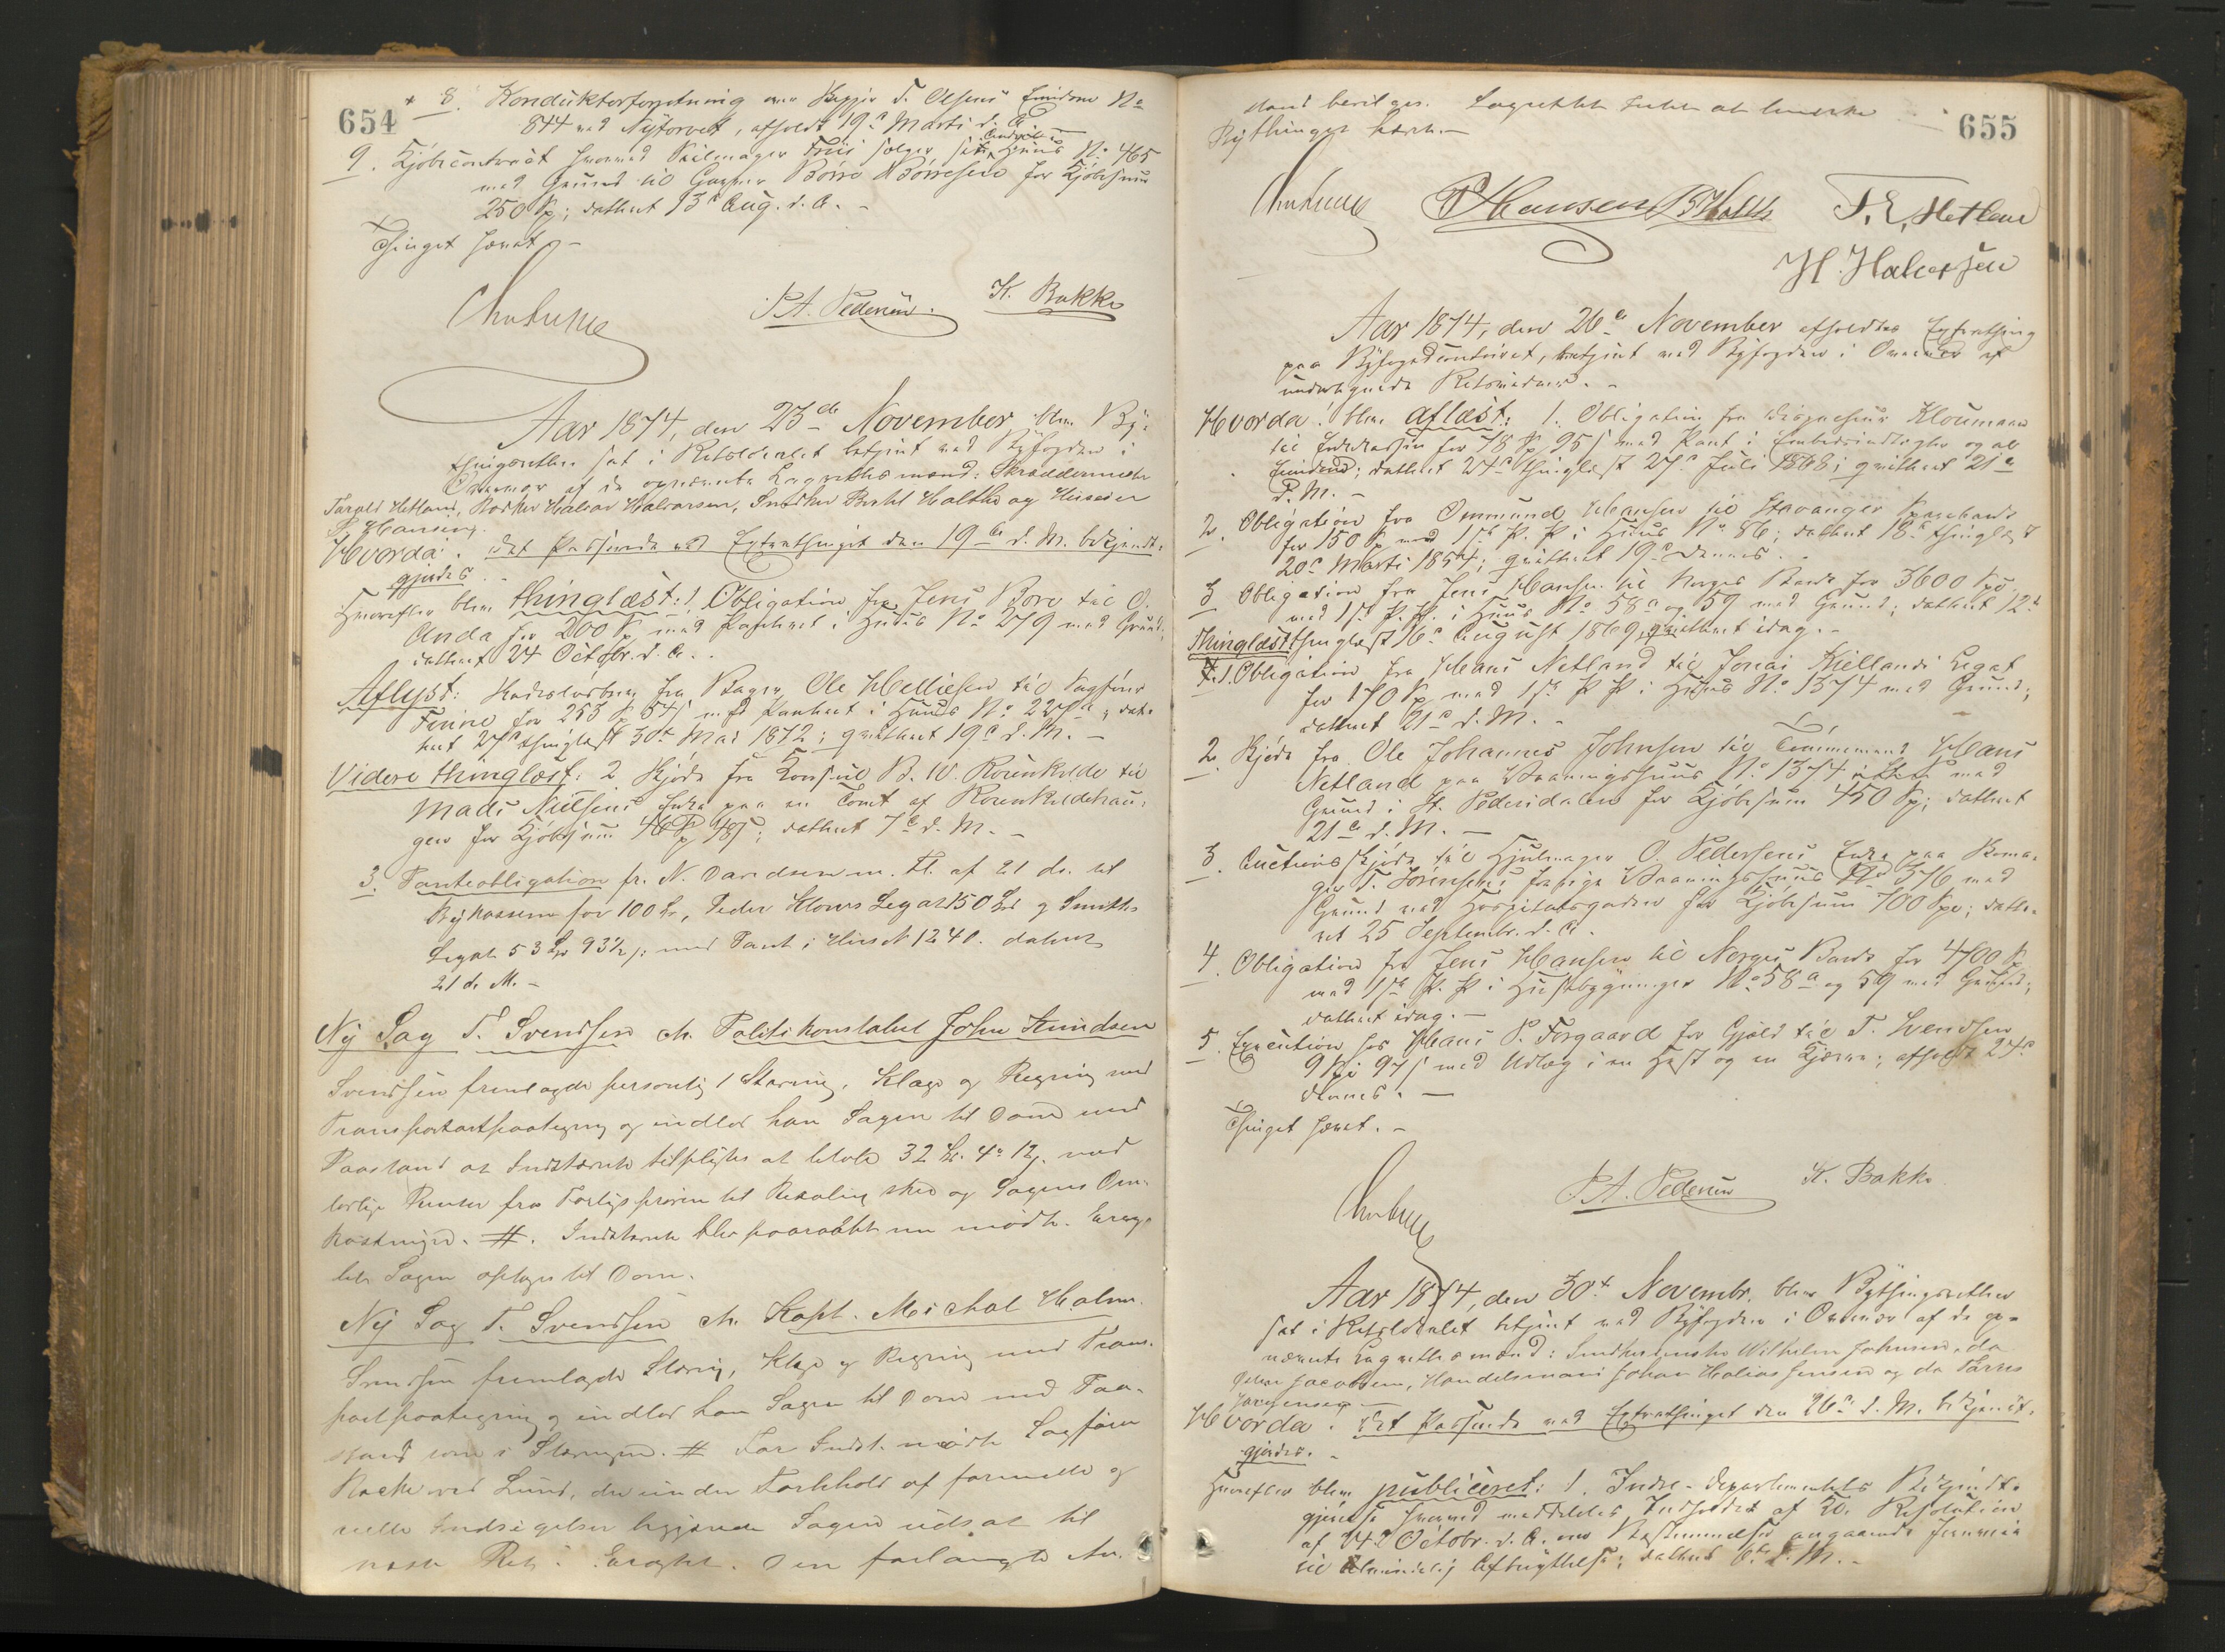 654
8. Konduktorforretning over Skipper T. Olsens Eiendom No
844 ved Nytorvet, afholdt 19de Marts d. A.
9. Kjøbecontract hvorved Seilmager Friis sælger sit Huus No 465
med Grund til Børre Børresen for Kjøbesum
250 Sp; dateret 13de Aug. d. A. -
Thinget hævet. -
P A. Pedersen. K. Bakke
Aar 1874, den 23de November blev By-
thingsretten sat i Retslocalet betjent ved Byfogden i
Overvær af de opnævnte Lagrettesmænd: Skræddermester
Tarald Hetland, Halvor Halvorsen, Snedker Berthel Halthe og
P Hansen.
Hvorda: det Passerede ved Extrathinget den 19de d. M. bekjendt-
gjordes. -
Hvorefter blev thinglæst: 1. Obligation fra Jens Bore til O.
Anda for 200 Sp med Panteret i Huus No 279 med Grund;
dateret 24 Octobr. d. A. -
Aflyst: fra Bager Ole Helliesen til Sagfører
Finne for 253 Sp 54 s med Panteret i Huus No 227a; date-
ret 27de thinglæst 30te Mai 1872; qvitteret 19de d. M. -
Videre thinglæst: 2 Skjøde fra Consul B. W. Rosenkilde til
Mads Nielsens Enke paa en Tomt af Rosenkildehau-
gen for Kjøbesum 46 Sp 48 s; dateret 7de d. M. -
3. Panteobligation fr. N. Davidsen m. fl. af 21 ds. til
Bykassen for 100 Sp, Peder Klows Legat 150 Sp og Smiths
Legat 53 Sp 93½ s. med Pant i Huus N 1240. dateret
21 d. M. -
Ny Sag T. Svendsen ctr. Politikonstabel John Knudsen
Svendsen fremlagde personlig 1 Stævning, Klage og Regning med
Transportpaategning og indlod han Sagen til Dom med
Paastand at Indstævnte tilpligtes at betale 32 Sp. 4 12 s. med
lovlige Renter fra Forligsprøven til Betaling skeer og Sagens Om-
kostninger. #. Indstævnte blev paaraabt men mødte. Eragt-
tet Sagen optages til Dom.
Ny Sag T. Svendsen ctr. Kapt. Meichal Holm.
Svendsen fremlagde Stævning, Klage og Regning med Trans-
portpaategning og indlod han Sagen til Dom med Paa-
stand som i Stævningen. # For Indst. mødte Sagfører
ved Lund, der under Forbehold af formelle og
relle Indsigelser begjærede Sagen udsat til
næste Ret. Eragtet. Den forlangte An-
655
stand bevilges. Lagrettet intet at bemærke
Bythinget hævet. -
P Hansen B Halthe T. E, Hetland
H. Halvorsen
Aar 1874, den 26de November afholdtes Extrathing
paa Byfogedcontoiret, betjent ved Byfogden i Overvær af
undertegnede Retsvidner. -
Hvorda: blev aflæst: 1. Obligation fra Kloumann
til for 78 Sp 95 s med Pant i Embedsindtægter og al
Eiendom; dateret 24de thinglæst 27de Juli 1868; qvitteret 21de
d. M. -
2. Obligation fra Ommund Hansen til Stavanger Sparebank
for 150 Sp med 1ste P. P i Huus No 86; dateret 18de thinglæst
20de Marts 1854; qvitteret 19de dennes. -
3 Obligation fra Jens Hansen til Norges Bank for 3600 Sp
med 1ste P. P. i Huus No 58a og 59 med Grund; dateret 12te
thinglæst 16de August 1869, qvitteret idag. -
Thinglæst:
1. Obligation fra Hans Netland til Jonas Kiellands Legat
for 170 Sp med 1ste P P i Huus No 1374 med Grund;
dateret 21de d. M. -
2. Skjøde fra Ole Johannes Johnsen til Tømmermand Hans
Netland paa Vaaningshuus No 1374 med
Grund i St. Pedersdalen for Kjøbesum 450 Sp; dateret
21de d. M. -
3. Auctionsskjøde til Hjulmager O. Pedersens Enke paa
T. forrige Vaaningshuus No 376 med
Grund ved Hospitalsgaden for Kjøbesum 700 Sp; date-
ret 25 Septembr. d. A.
4. Obligation fra Jens Hansen til Norges Bank for 4700 Sp
med 1ste P. P i Huusbygninger No 58a og 59 med Grund;
dateret idag. -
5. Execution hos Hans P. Forgaard for Gjæld til T. Svendsen
9 Sp 97 s med Udlæg i en Hest og en Kjærre; afholdt 24de
dennes. -
Thinget hævet. -
P A. Pedersen K. Bakke
Aar 1874, den 30te Novembr. blev Bythingsretten
sat i Retslocalet betjent ved Byfogden i Overvær af de op-
nævnte Lagrettesmænd: Snedkermester Wilhelm Johnsen, do
Jacobsen, Handelsmand Johan Helias Jensen og do Tørres
Jørgensen
Hvorda: det Passerede ved Extrathinget den 26de d. M. bekjendt-
gjordes. -
Hvorefter blev publiceret: 1. Indre-Departementets Bekjendt-
gjørelse hvorved meddeles Indholdet af Kgl. Resolution
af 24de Octobr. d. A. om Bestemmelser angaaende
til almindelig Afbenyttelse; dateret 6te d. M. -